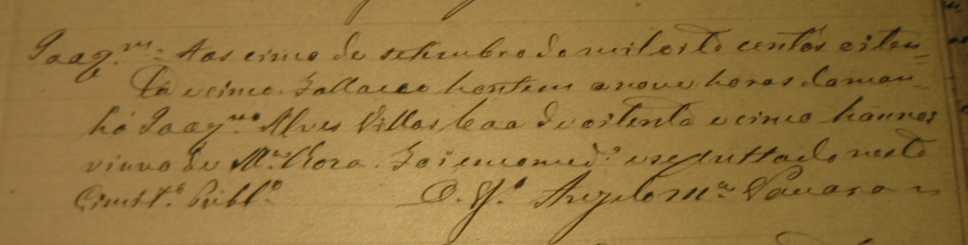 Joaq.^m = Aos cinco de setembro de mil oito centos e oiten=
ta e cinco. Falleceo hontem a nove horas da man=
hã Joaq.^m Alves Villas boa de oitenta e cinco hannos
viuvo de M.^a Roza. Foi encomed.^o e sepultado nesto
Cimit.^o Publ.^o O V.^o